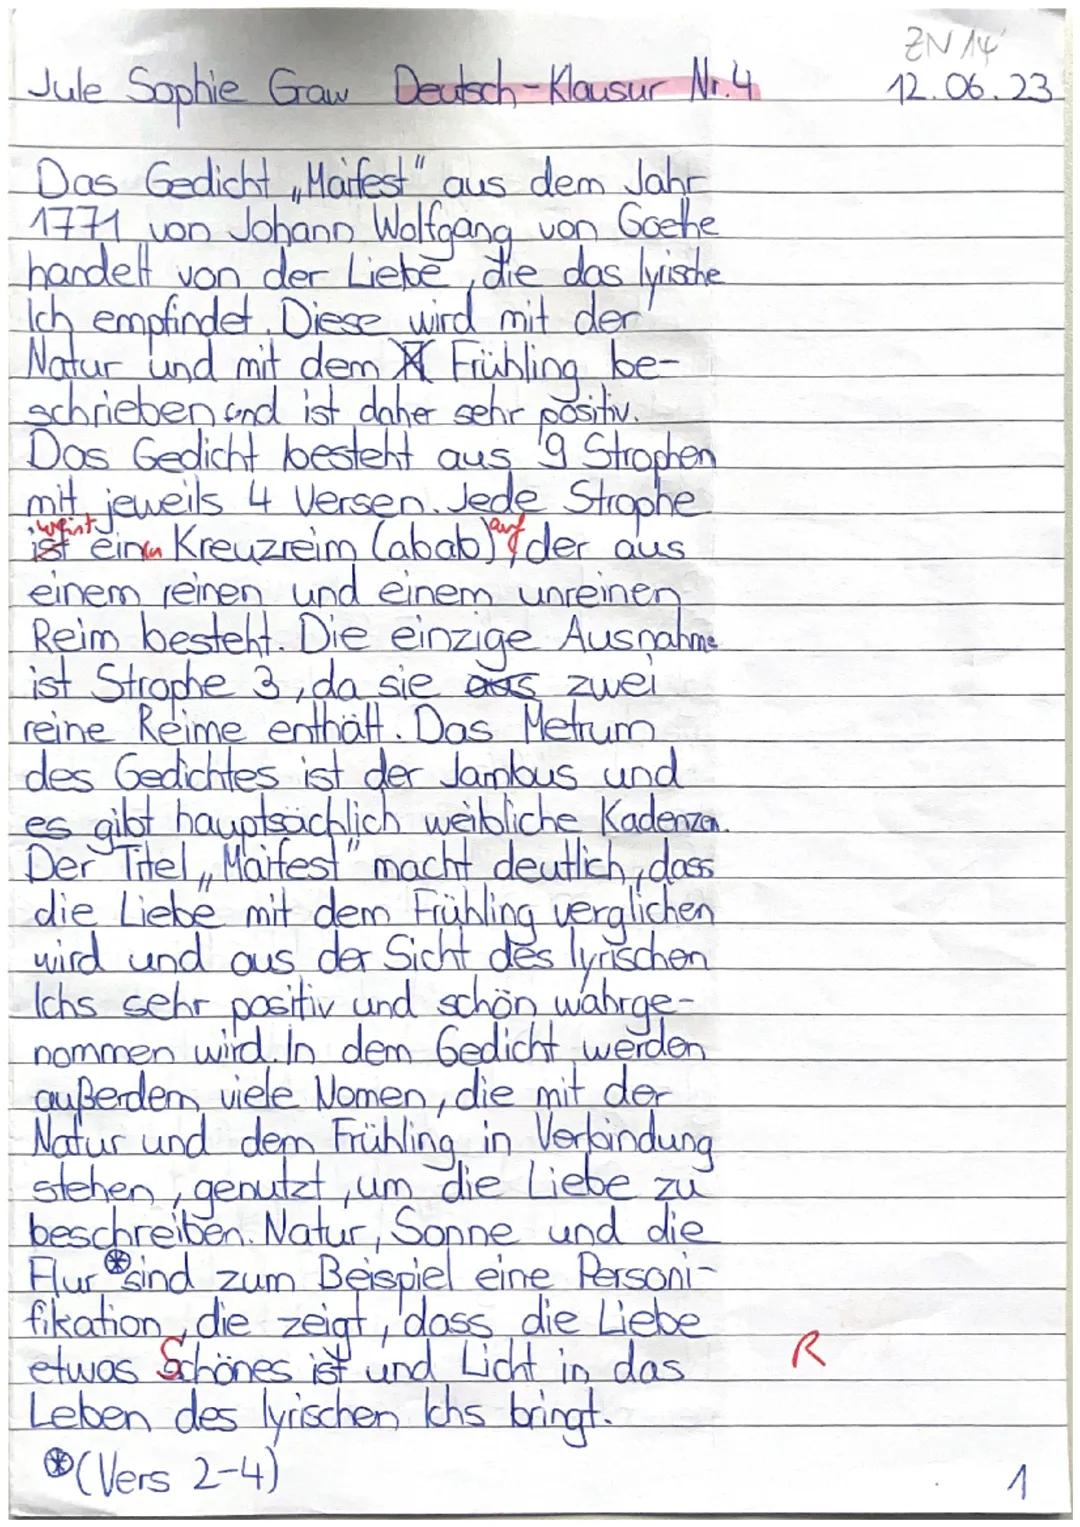 ZN 14
Jule Sophie Graw Deutsch-Klausur Nr.4 12.06.23
Das Gedicht „Maifest" aus dem Jahr
1771 von Johann Wolfgang von Goethe
handelt von der Liebe, die das lyrische
Ich empfindet. Diese wird mit der
Natur und mit dem Frühling be-
schrieben und ist daher sehr positiv.
Das Gedicht besteht aus 9 Strophen
mit jeweils 4 Versen. Jede Strophe
weist auf
ist einen Kreuzreim (abab), der aus
einem reinen und einem unreinen
Reim besteht. Die einzige Ausnahme
ist Strophe 3, da sie aus zwei
reine Reime enthält. Das Metrum
des Gedichtes ist der Jambus und
es gibt hauptsächlich weibliche Kadenzen.
Der Titel „Maifest" macht deutlich, dass
die Liebe mit dem Frühling verglichen
wird und aus der Sicht des lyrischen
Ichs sehr positiv und schön wahrge-
nommen wird. In dem Gedicht werden
außerdem viele Nomen, die mit der
Natur und dem Frühling in Verbindung
stehen, genutzt, um die Liebe zu
beschreiben. Natur, Sonne und die
Flur ⊛sind zum Beispiel eine Personi-
fikation, die zeigt, dass die Liebe
etwas Schönes ist und Licht in das R
Leben des lyrischen Ichs bringt.
⊛(Vers 2-4) 1